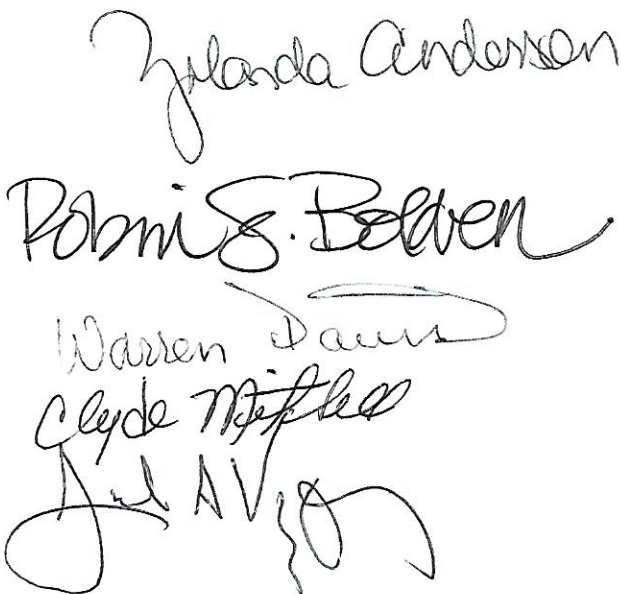 Yolanda Anderson
Robin S. Bolden
Warren Davis
Clyde Mitchell
A